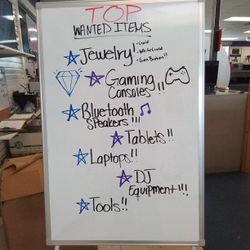 TOP
WANTED ITEMS
Jewelry!
• Gold
• White Gold
• Even Broken!
Gaming
Consoles!!
Bluetooth
Speakers!!!
Tablets!!
Laptops!!
DJ
Equipment!!!
Tools!!